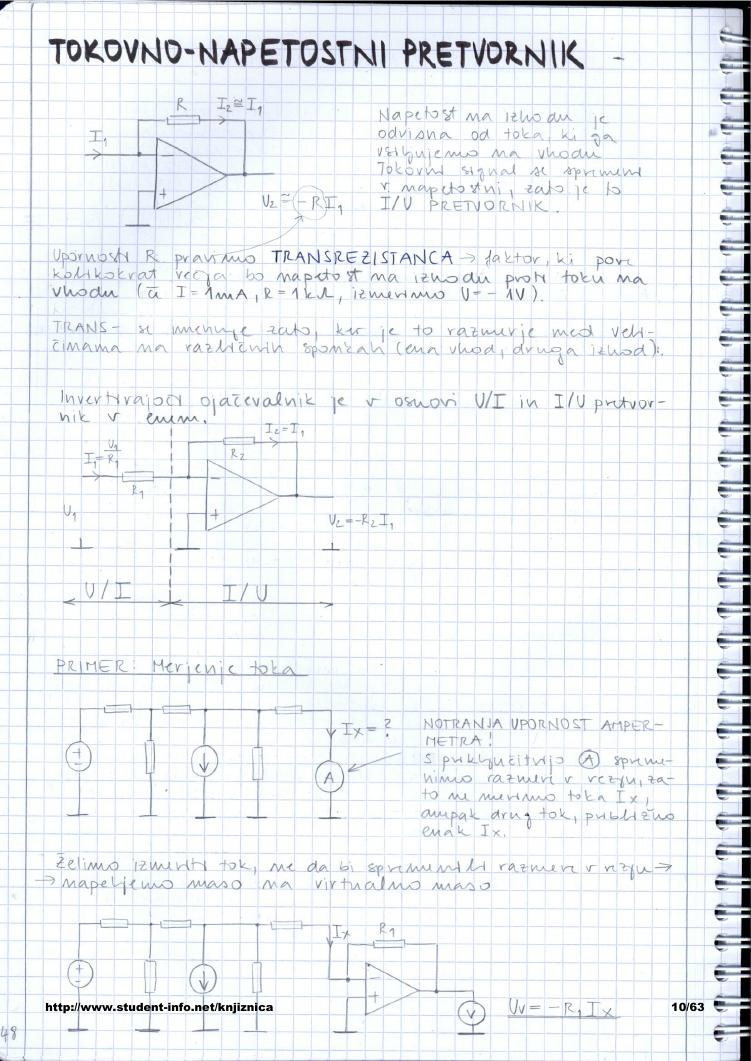 TOKOVNO-NAPETOSTNI PRETVORNIK -
R I₂≅I₁
I₁
-
+
U₂ ≅ -R I₁
Napetost na izhodu je
odvisna od toka, ki ga
vsiljujemo na vhodu
Tokovni signal se spremeni
v napetostni, zato je to
I/U PRETVORNIK.
Upornosti R pravimo TRANSREZISTANCA → faktor, ki pove
kolikokrat večja bo napetost na izhodu proti toku na
vhodu (če I = 1mA, R = 1kΩ, izmerimo U = - 1V).
TRANS- se imenuje zato, ker je to razmerje med veli-
činama na različnih sponkah (ena vhod, druga izhod).
Invertirajoči ojačevalnik je v osnovi U/I in I/U pretvor-
nik v enem.
I₂=I₁
I₁=U₁/R₁
R₂
R₁
-
+
U₁
U₂=-R₂I₁
U/I I/U
PRIMER: Merjenje toka
Ix = ?
+
-
A
NOTRANJA UPORNOST AMPER-
METRA!
S priključitvijo A spreme-
nimo razmere v vezju, za-
to ne merimo toka Ix,
ampak drug tok, približno
enak Ix.
Želimo izmeriti tok, ne da bi spremenili razmere v vezju →
→ napeljemo maso na virtualno maso
Ix R₁
-
+
+
-
V
Uv = -R₁ Ix
http://www.student-info.net/knjiznica 10/63
48